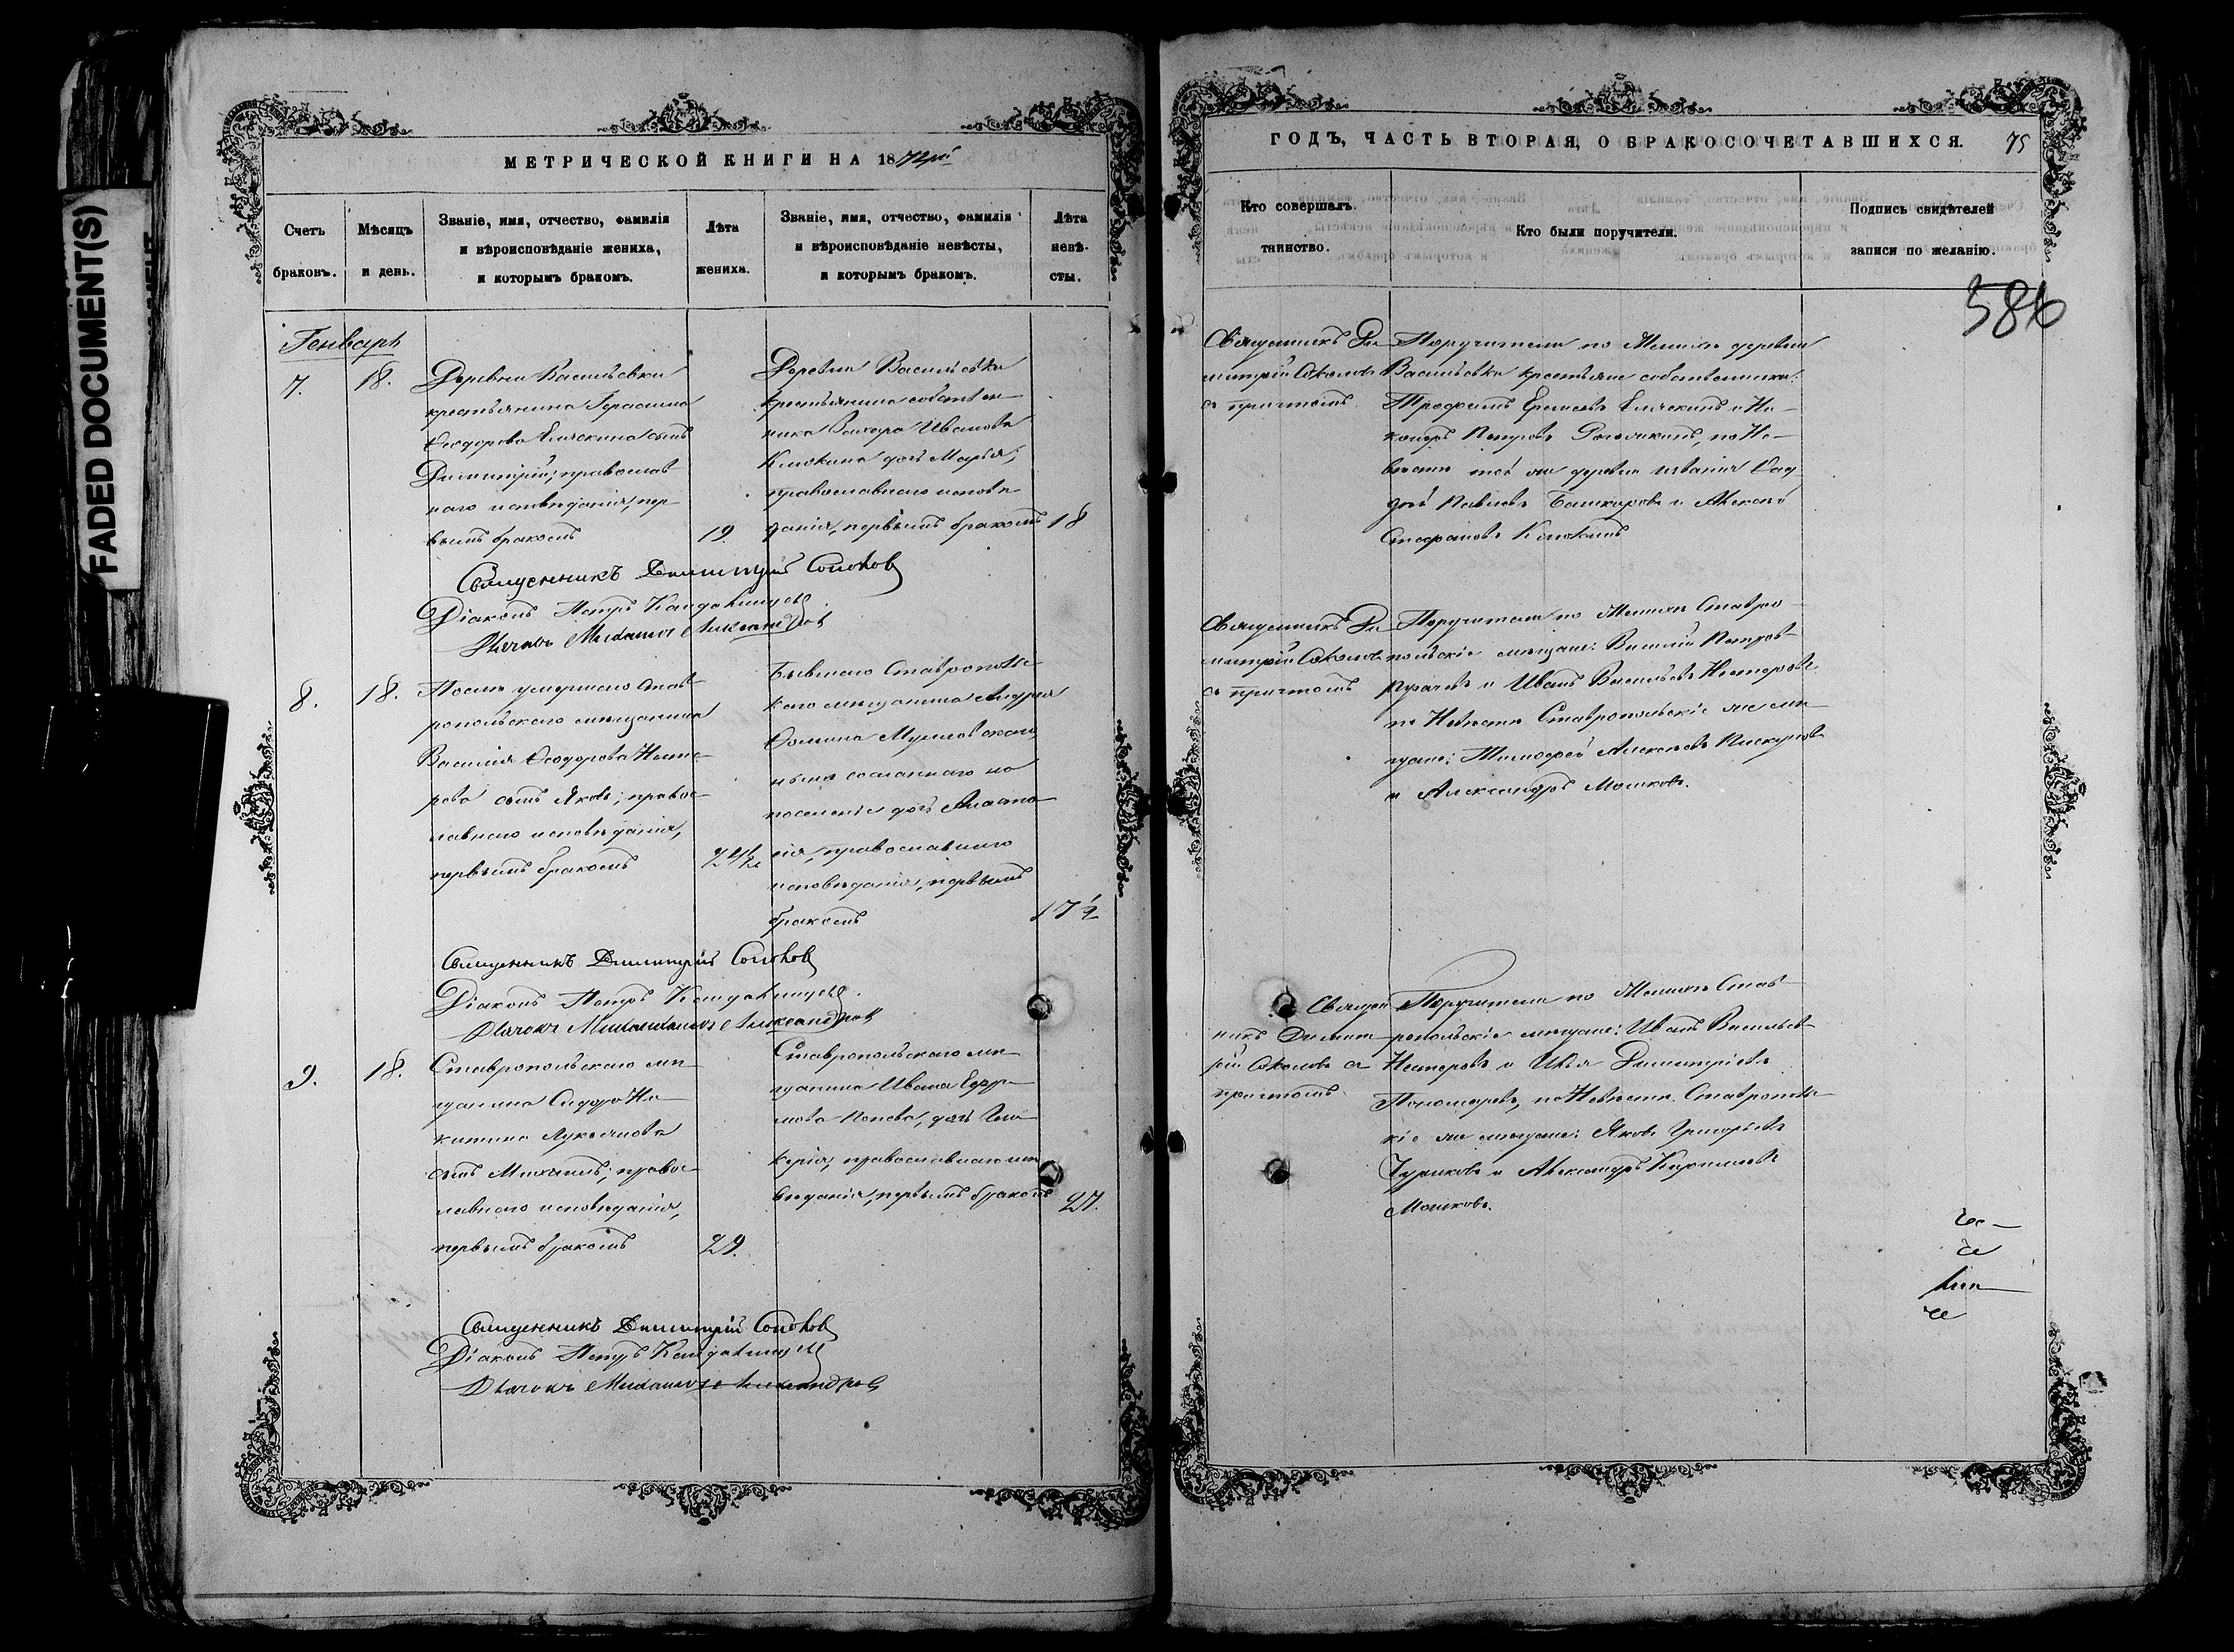 FADED DOCUMENT(S)
МЕТРИЧЕСКОЙ КНИГИ НА 1872й
Счетъ браковъ.
Мѣсяцъ и день.
Званіе, имя, отчество, фамилія
и вѣроисповѣданіе жениха,
и которымъ бракомъ.
Лѣта жениха.
Званіе, имя, отчество, фамилія
и вѣроисповѣданіе невѣсты,
и которымъ бракомъ.
Лѣта невѣсты.
Генварь
7.
18.
Деревни Васильевки
крестьянина Герасима
Ѳеодорова сынъ
Димитрій; православ
наго исповѣданія, пер
вымъ бракомъ
19.
Деревни Васильевки
крестьянина собствен
ника Захара Иванова
Клюкина дочь Марья;
православнаго исповѣ
данія, первымъ бракомъ
18
Священникъ Димитрій Соколов
Діаконъ Петръ
Дьячокъ Александров
8.
18.
Послѣ умершаго Став
ропольскаго мѣщанина
Василія Ѳеодорова Несте
рова сынъ Яковъ; правос
лавнаго исповѣданія,
первымъ бракомъ
24½
Бывшаго Ставрополь
скаго мѣщанина Андрея
Ѳомина
нынѣ сосланнаго на
поселеніе дочь Анаста
сія, православнаго
исповѣданія, первымъ
бракомъ
17½
Священникъ Димитрій Соколов
Діаконъ Петръ
Дьячокъ Александров
9.
18.
Ставропольскаго мѣ
щанина Сидора Ни
китина Лукьянова
сынъ Михаилъ; правос
лавнаго исповѣданія,
первымъ бракомъ
29.
Ставропольскаго мѣ
щанина Ивана Ефре
мова Попова, дочь Гли
керія, православнаго испо
вѣданія, первымъ бракомъ
27.
Священникъ Димитрій Соколов
Діаконъ Петръ
Дьячокъ Александров
ГОДЪ, ЧАСТЬ ВТОРАЯ, О БРАКОСОЧЕТАВШИХСЯ.
75
Кто совершалъ таинство.
Кто были поручители.
Подпись свидѣтелей
записи по желанію.
586
Священникъ Ди
митрій Соколовъ
съ причтомъ
Поручители по Женихѣ деревни
Васильевки крестьяне собственники:
Трофимъ и Ни
каноръ Петровъ по Не
вѣстѣ той же деревни
Павловъ Башкировъ и Алексѣй
Стефановъ Клюкинъ
Священникъ Ди
митрій Соколовъ
съ причтомъ
Поручители по Женихѣ Ставро
польскіе мѣщане: Василій Петровъ
и Иванъ Васильевъ Нестеровъ
по Невѣстѣ Ставропольскіе же мѣ
щане: Тимофей Алексѣевъ Пискуновъ
и Александръ Мошковъ.
Священ
никъ Димит
рій Соколовъ съ
причтомъ
Поручители по Женихѣ Став
ропольскіе мѣщане: Иванъ Васильевъ
Нестеровъ и Илья Димитріевъ
Пономаревъ, по Невѣстѣ Ставрополь
кіе же мѣщане: Яковъ Григорьевъ
Чуриковъ и Александръ Карпиловъ
Мошковъ.